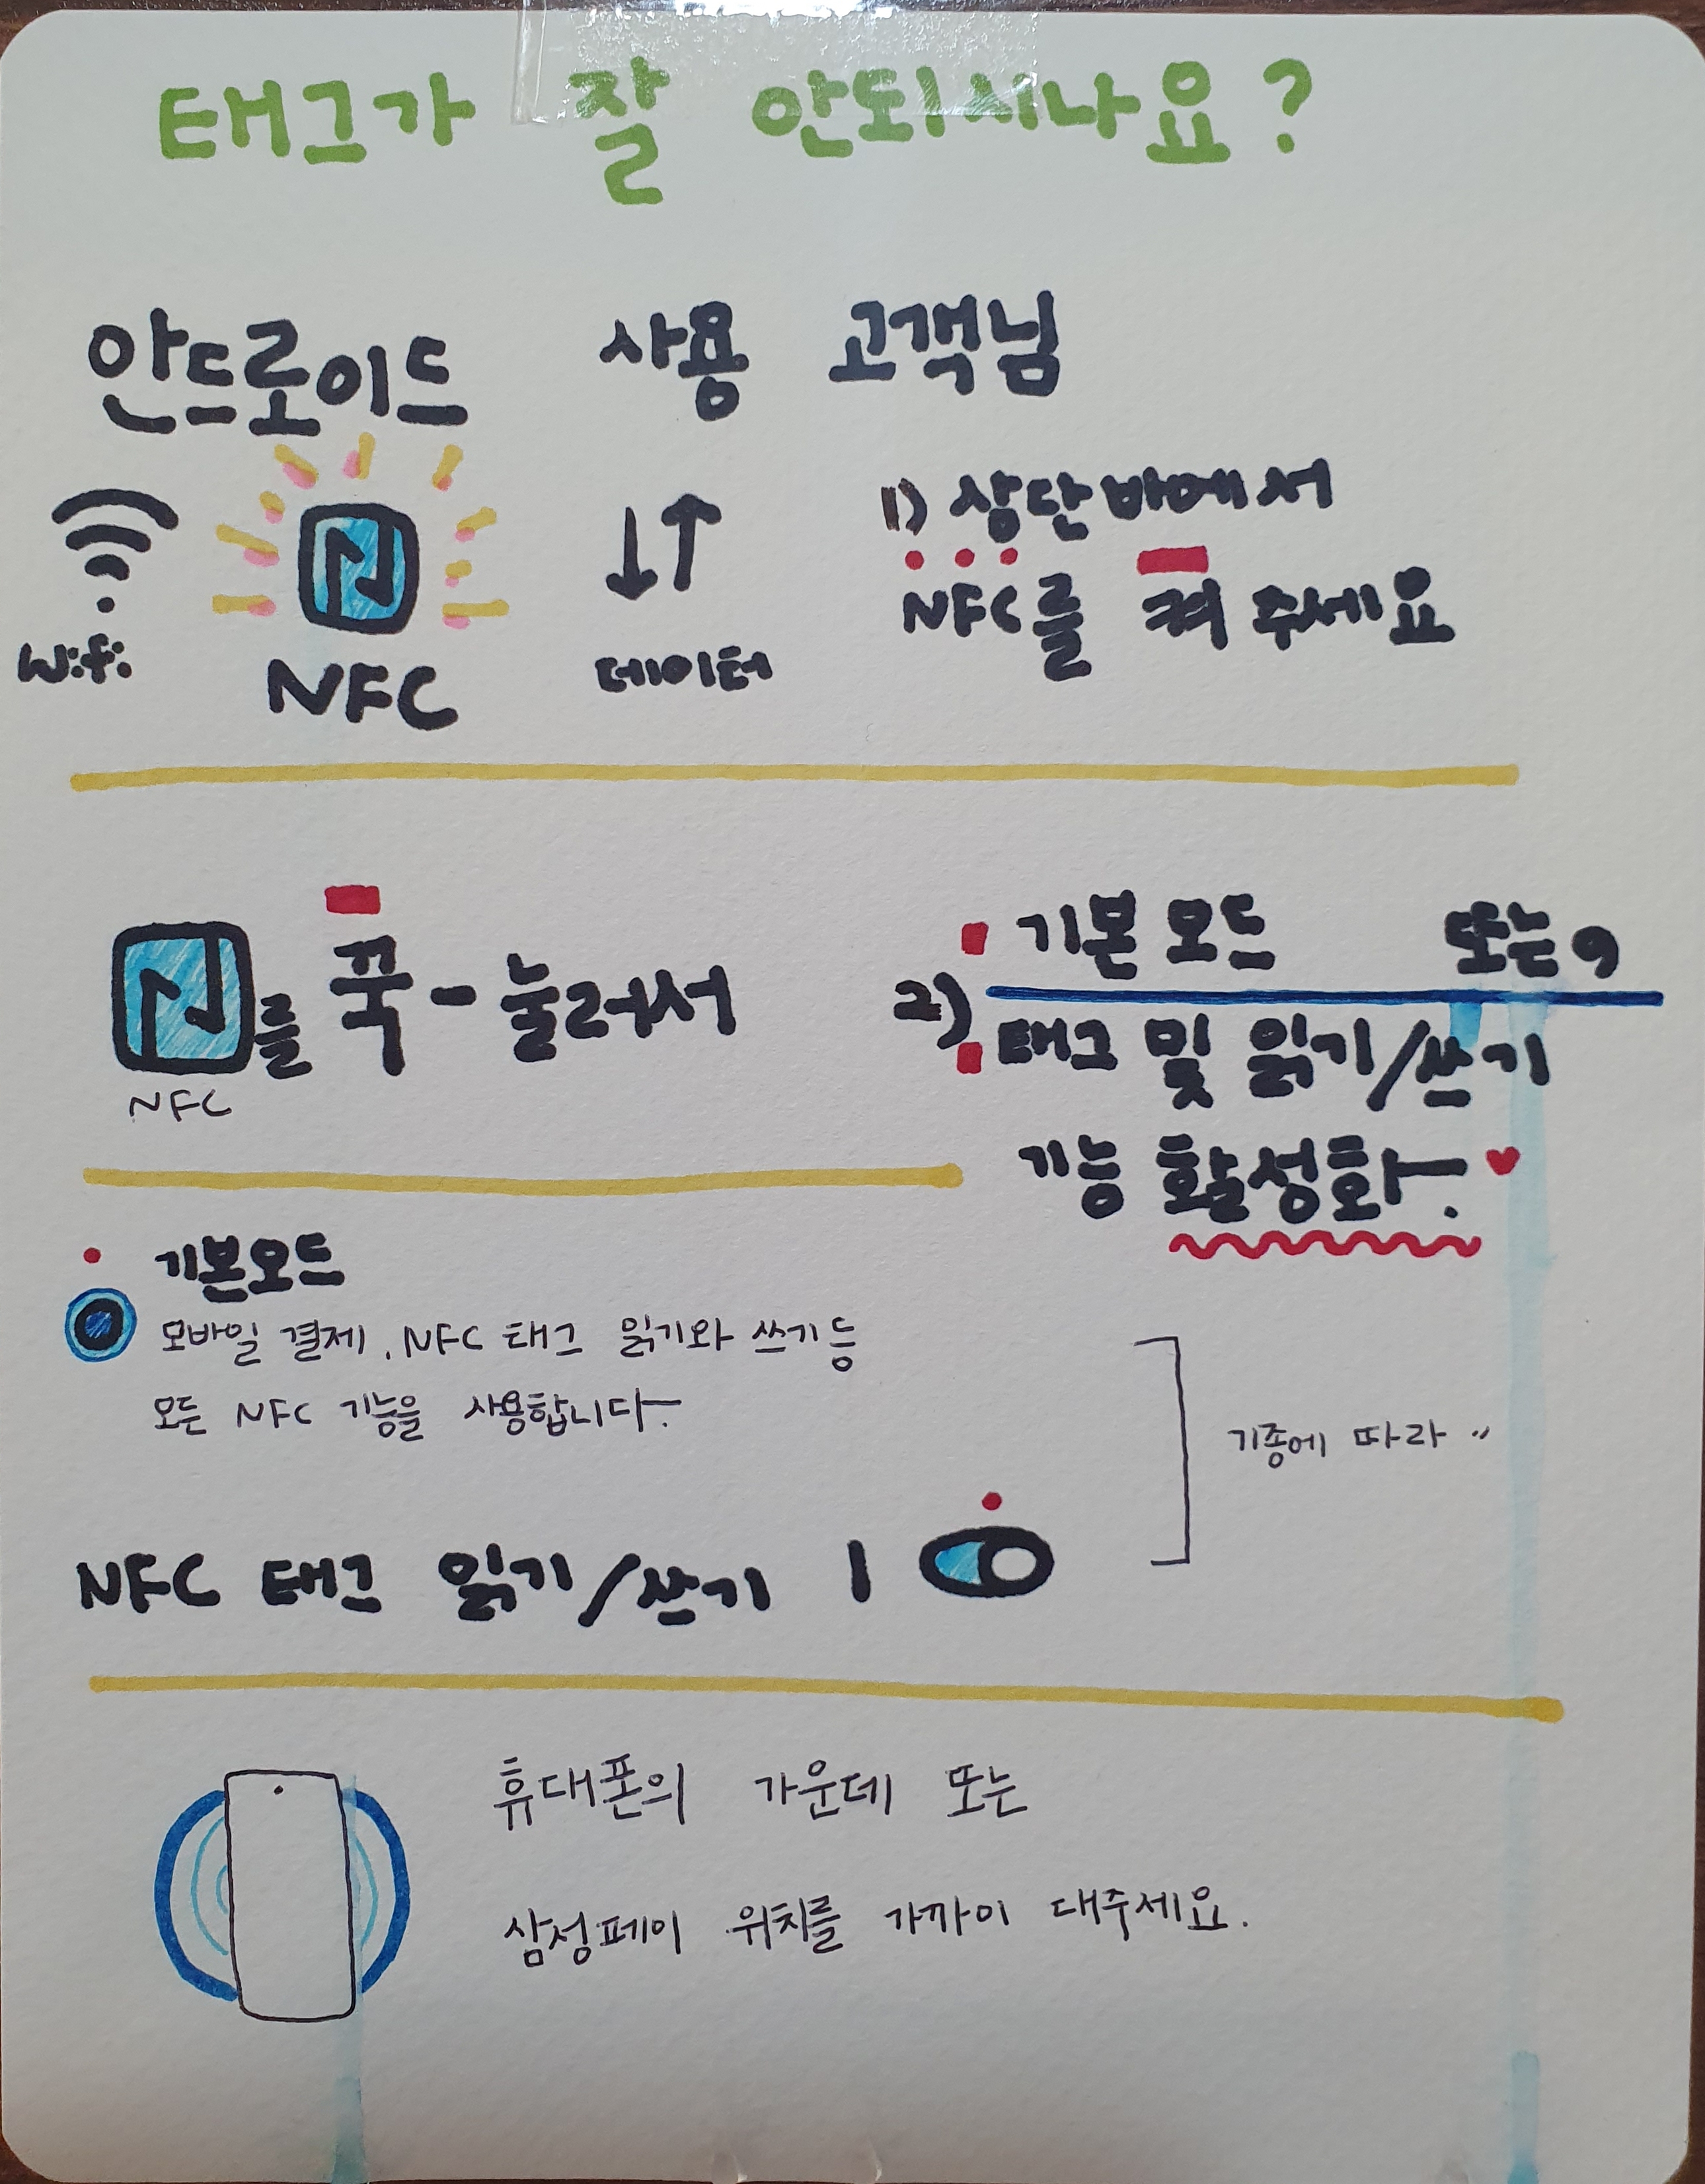 태그가 잘 안되시나요?
안드로이드 사용 고객님
wifi
NFC
데이터
1) 상단바에서
NFC를 켜 주세요
를 꾹-눌러서
NFC
2) 기본 모드 또는,
태그 및 읽기/쓰기
기능 활성화.
기본모드
모바일 결제, NFC 태그 읽기와 쓰기 등
모든 NFC 기능을 사용합니다.
기종에 따라
NFC 태그 읽기/쓰기 |
휴대폰의 가운데 또는
삼성페이 위치를 가까이 대주세요.